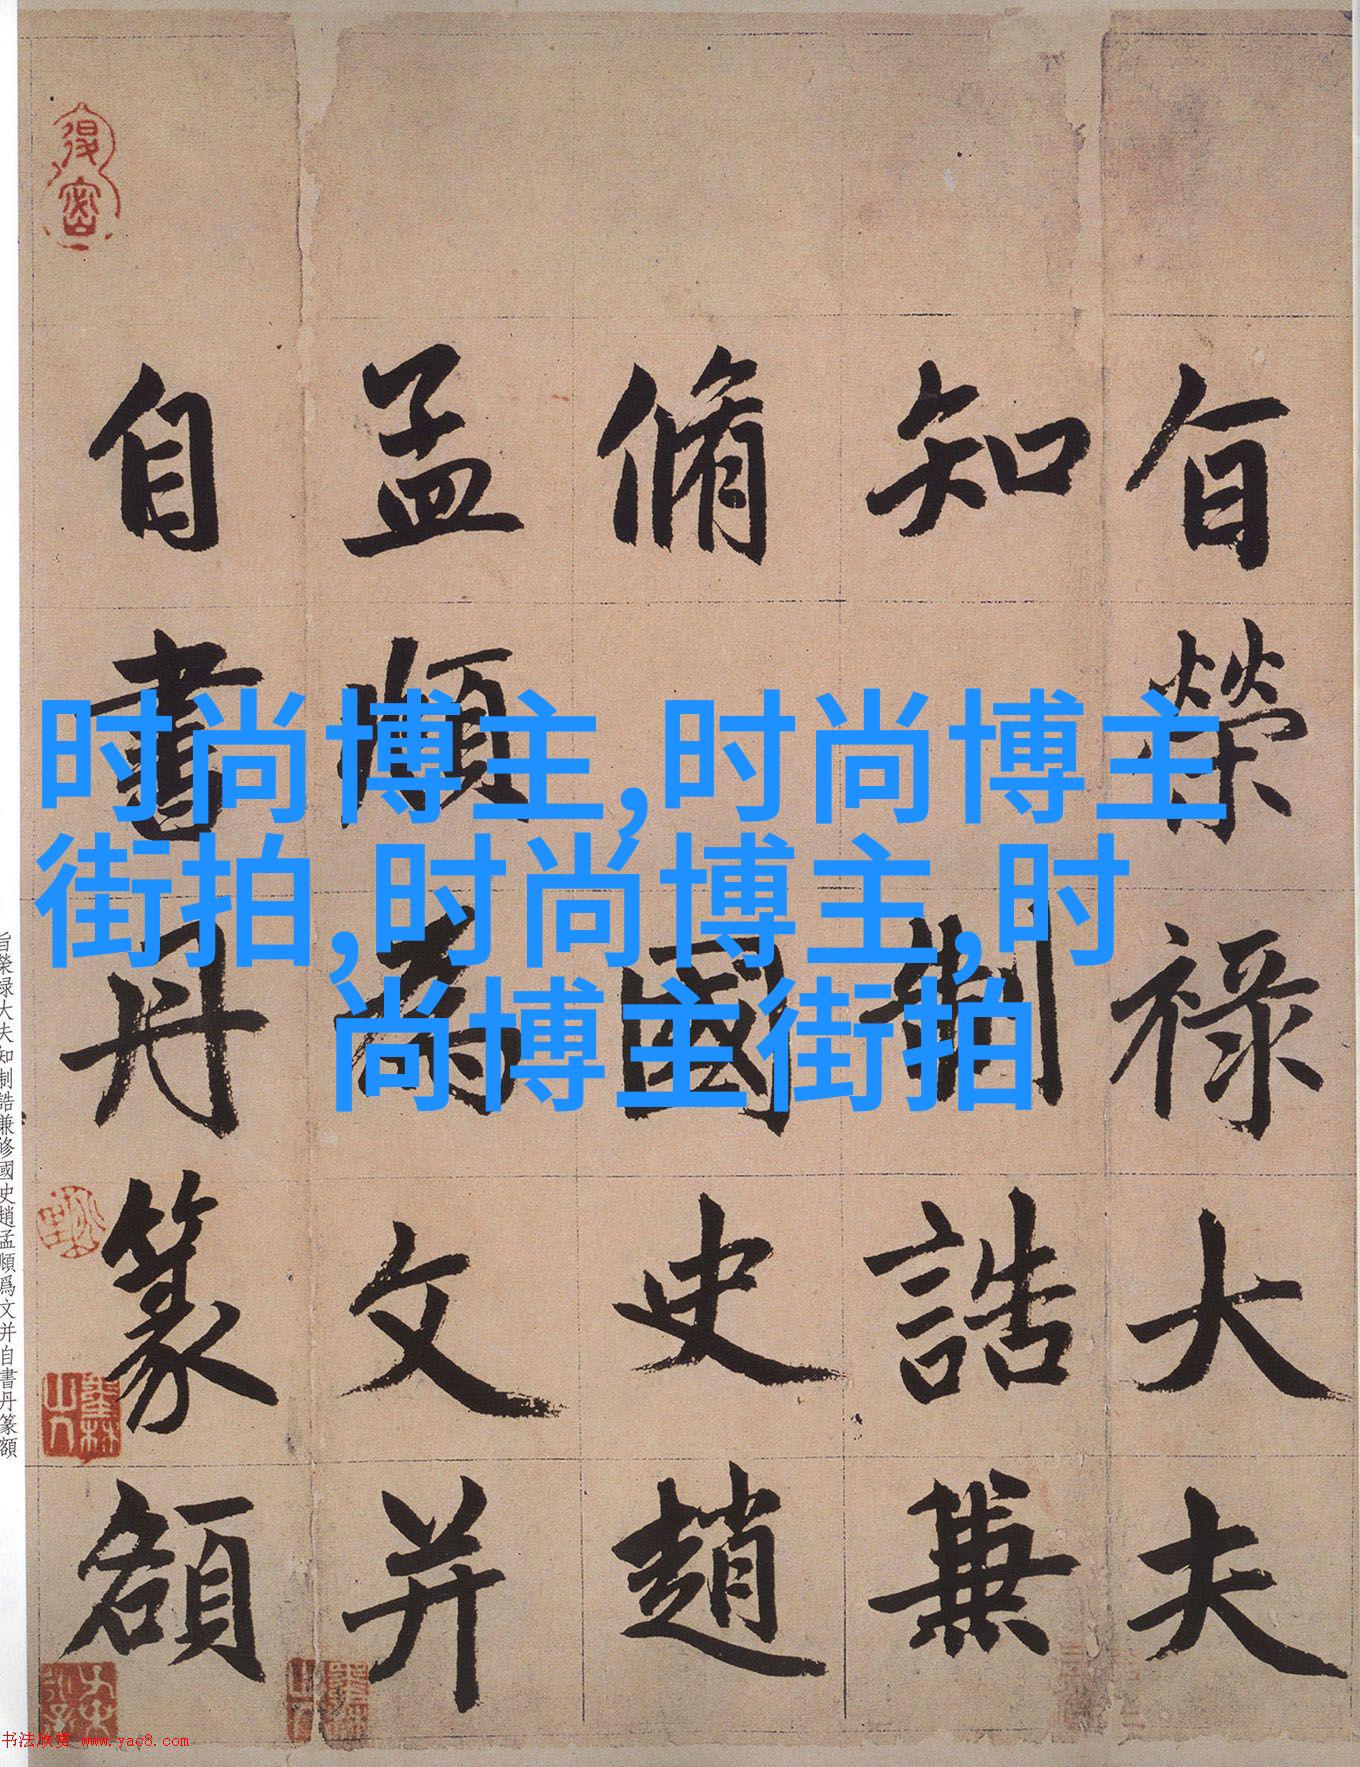 旨榮祿大夫
知制誥兼
脩國史趙
孟頫為文并
自書丹篆額
时尚博主,时尚博主
街拍,时尚博主,时
尚博主街拍
旨榮祿大夫知制誥兼修國史趙孟頫爲文并自書丹篆額
墨林山人
书法欣赏 www.yac8.com